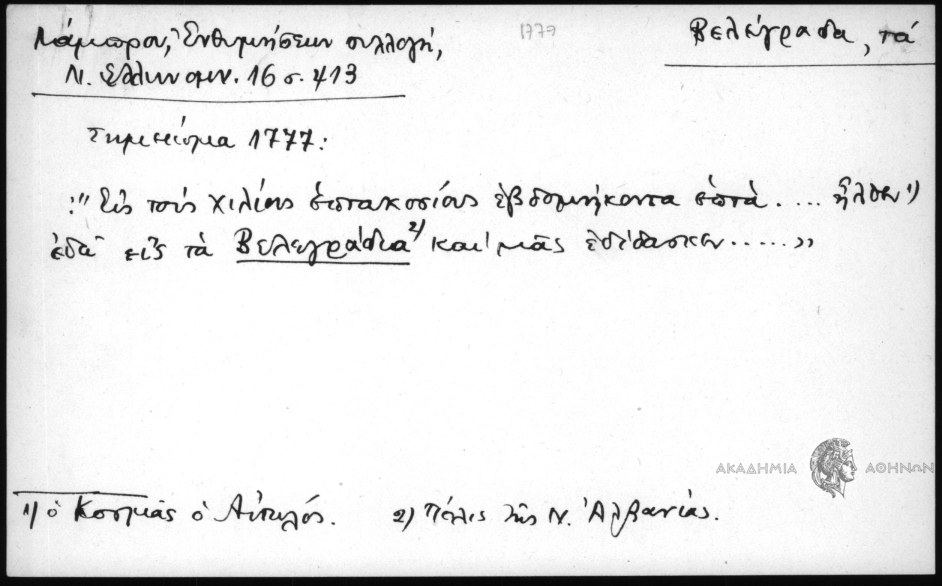 Λάμπρου, Ἐνθυμήσεων συλλογή,
Ν. Ἑλληνομν. 16 σ. 413
1777
Βελέγραδα, τά
Σημείωμα 1777:
:"Εἰς τοὺς χιλίους ἑπτακοσίους ἑβδομήκοντα ἑπτὰ.... ἦλθεν 1)
ἐδῶ εἰς τὰ Βελεγράδια 2) καὶ μᾶς ἐδίδασκεν.....»
ΑΚΑΔΗΜΙΑ ΑΘΗΝΩΝ
1) ὁ Κοσμᾶς ὁ Αἰτωλός. 2) Πόλις τῆς Ν. Ἀλβανίας.